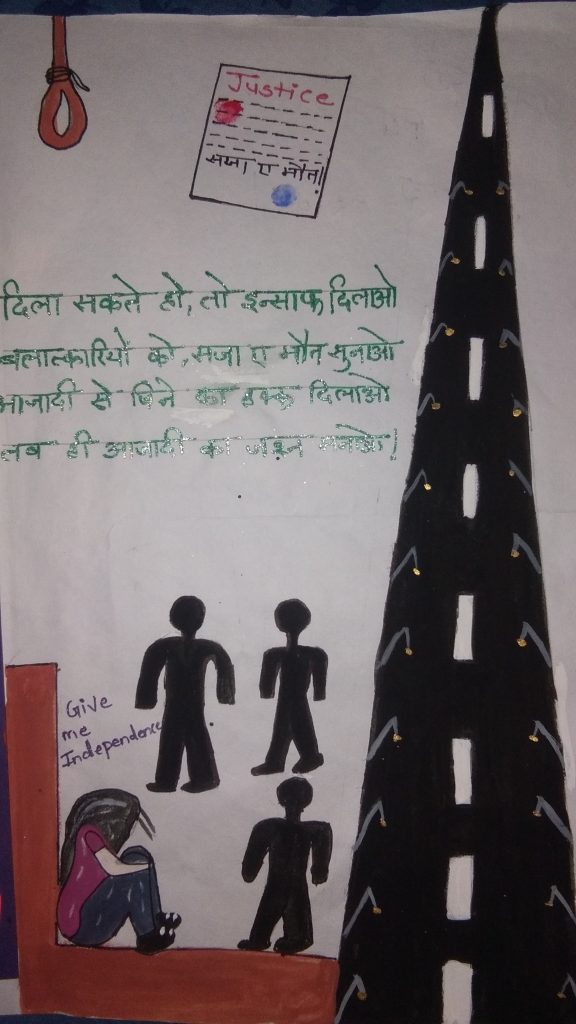 Justice
सजा ए मौत!
दिला सकते हो, तो इन्साफ दिलाओ
बलात्कारियों को, सजा ए मौत सुनाओ
आजादी से जिने का हक्क दिलाओ
तब ही आजादी का जश्न मनाओ!
Give
me
Independence